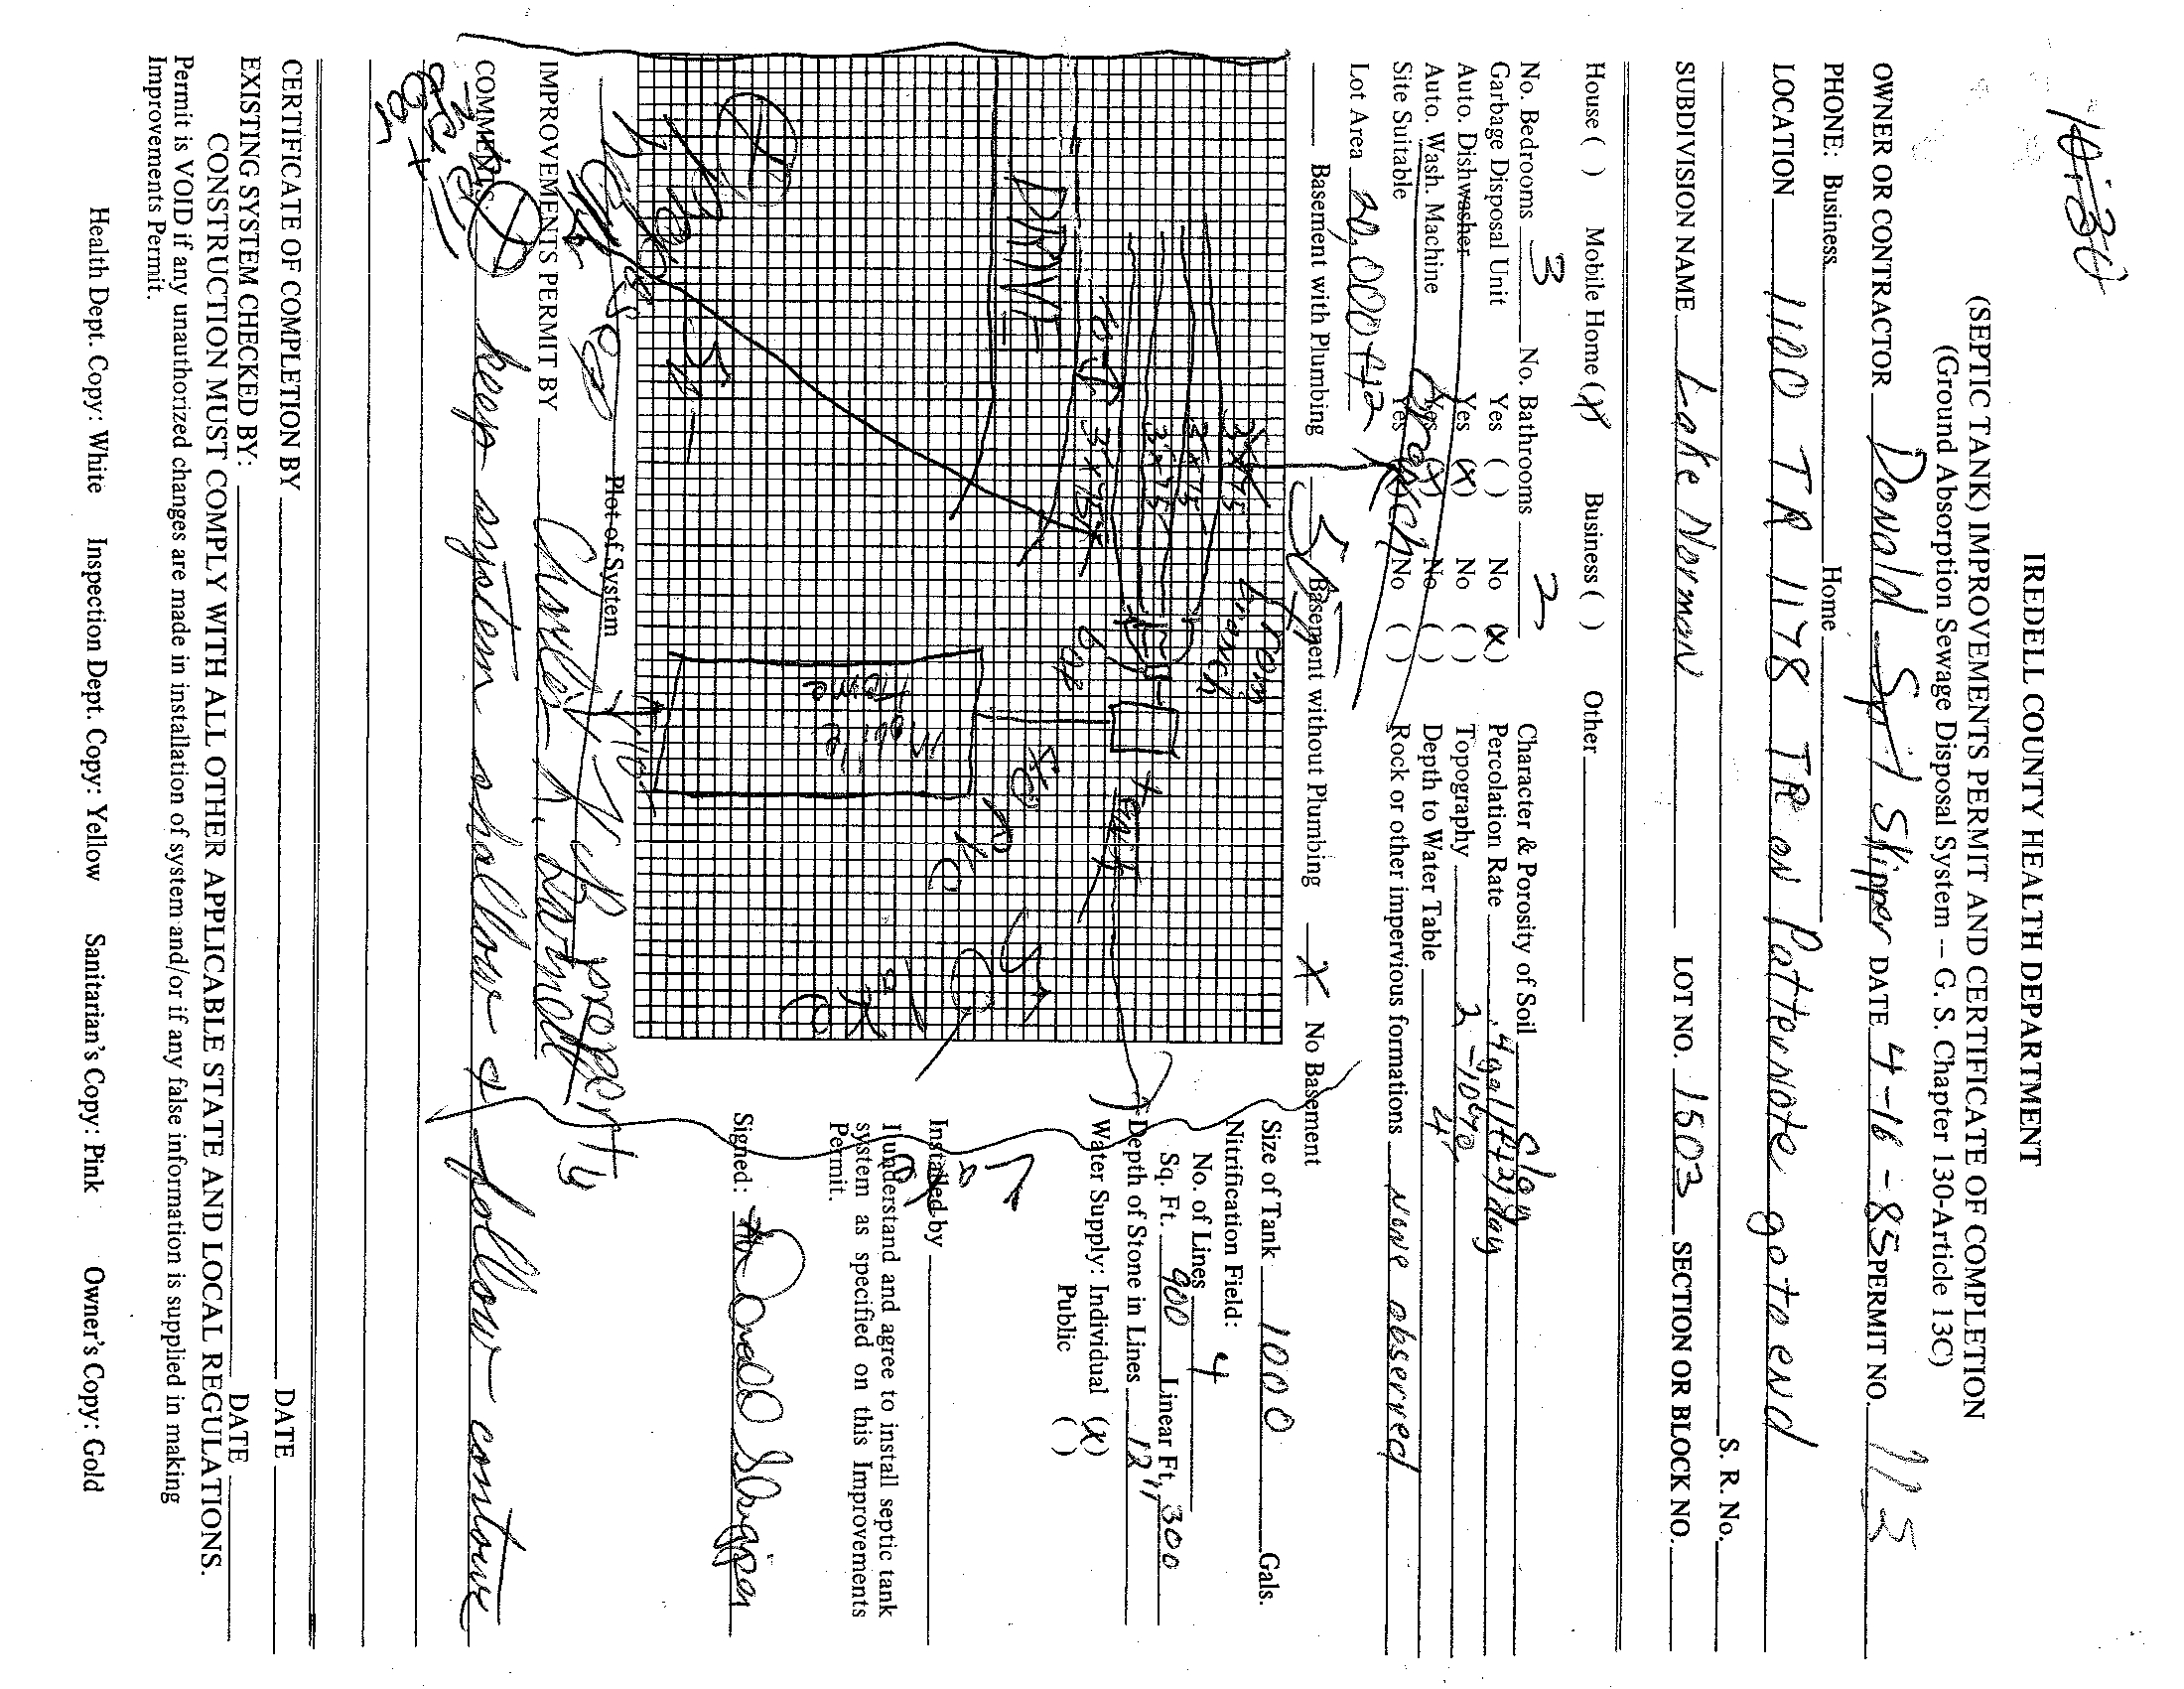 IREDELL COUNTY HEALTH DEPARTMENT
(SEPTIC TANK) IMPROVEMENTS PERMIT AND CERTIFICATE OF COMPLETION
(Ground Absorption Sewage Disposal System -- G. S. Chapter 130-Article 13C)
OWNER OR CONTRACTOR Donald Skipper DATE 4-16-85 PERMIT NO. 113
PHONE: Business Home
LOCATION 1100 TR 1178 TR on Patternote go to end
S. R. No.
SUBDIVISION NAME Lake Norman LOT NO. 1503 SECTION OR BLOCK NO.
House ( ) Mobile Home (X) Business ( ) Other
No. Bedrooms 3 No. Bathrooms 2
Garbage Disposal Unit Yes ( ) No (X)
Auto. Dishwasher Yes (X) No ( )
Auto. Wash. Machine Yes (X) No ( )
Site Suitable Yes (X) No ( )
Character & Porosity of Soil Clay
Percolation Rate .4 gal/ft2/day
Topography 2-10%
Depth to Water Table 4'
Rock or other impervious formations none observed
Lot Area 20,000 ft2
Basement with Plumbing Basement without Plumbing X No Basement
Branch
50 ft
from
branch
3x75
3x75
3'x75'
3'x75'
10 ft
tank
DRIVE
Mobile
Home
Lake
Plot of System
property
Size of Tank 1000 Gals.
Nitrification Field:
No. of Lines 4
Sq. Ft. 900 Linear Ft. 300
Depth of Stone in Lines 12"
Water Supply: Individual (X)
Public ( )
Installed by
I understand and agree to install septic tank
system as specified on this Improvements
Permit.
Signed: Donald Skipper
IMPROVEMENTS PERMIT BY
COMMENTS: keep system shallow & follow contour
CERTIFICATE OF COMPLETION BY DATE
EXISTING SYSTEM CHECKED BY: DATE
CONSTRUCTION MUST COMPLY WITH ALL OTHER APPLICABLE STATE AND LOCAL REGULATIONS.
Permit is VOID if any unauthorized changes are made in installation of system and/or if any false information is supplied in making
Improvements Permit.
Health Dept. Copy: White Inspection Dept. Copy: Yellow Sanitarian's Copy: Pink Owner's Copy: Gold